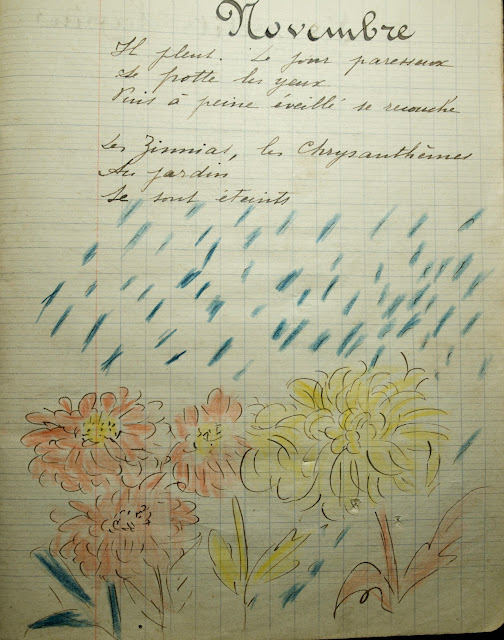 Novembre
Il pleut. Le jour paresseux
Se frotte les yeux
Puis à peine éveillé se recouche
Les Zinnias, les Chrysanthèmes
Au jardin
Se sont éteints